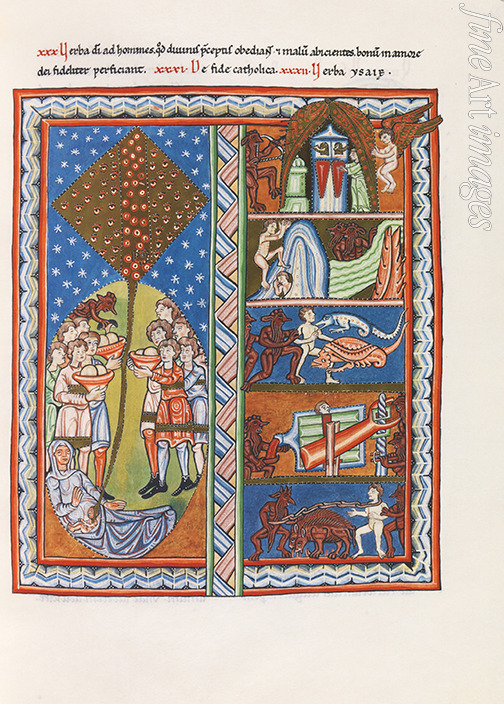 xxx Verba di ad homines. qd divinis pceptis obediant & malū abicientes. bonū in amore
dei fideliter perficiant. xxxi. De fide catholica. xxxii. Verba ysaiȩ.
fine Art images